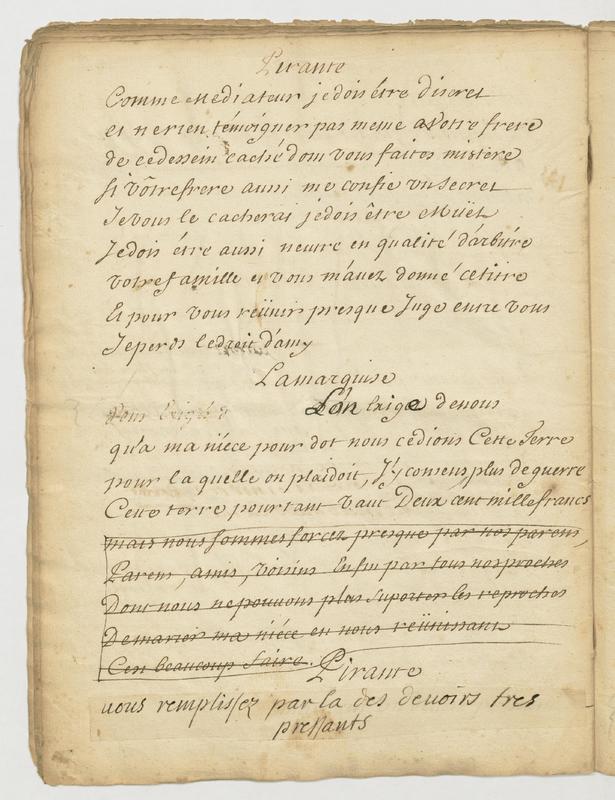 Pirante
Comme Mediateur je dois étre discret
et ne rien témoigner pas meme a Votre frere
de ce dessein caché dom vous faites mistère
si vôtre frere aussi me confie vn secret
Je vous le cacherai je dois être Müet
Je dois étre aussi neutre en qualité d'arbitre
votre famille et vous m'avez donné ce titre
Et pour vous reünir presque Juge entre vous
Je perds le droit d'amy
La marquise
L'on exige de nous
qu'a ma niéce pour dot nous cedions Cette Terre
pour la quelle on plaidoit, J'y consens plus de guerre
Cette terre pourtant vaut Deux cent mille francs
mais nous sommes forcez presque par nos parens,
Parens, amis, voisins Enfin par tous nos proches
Dont nous ne pouvons plus suporter les reproches
De marier ma niéce en nous reünissant
C'est beaucoup faire. Pirante
vous remplissez par la des devoirs tres
pressants